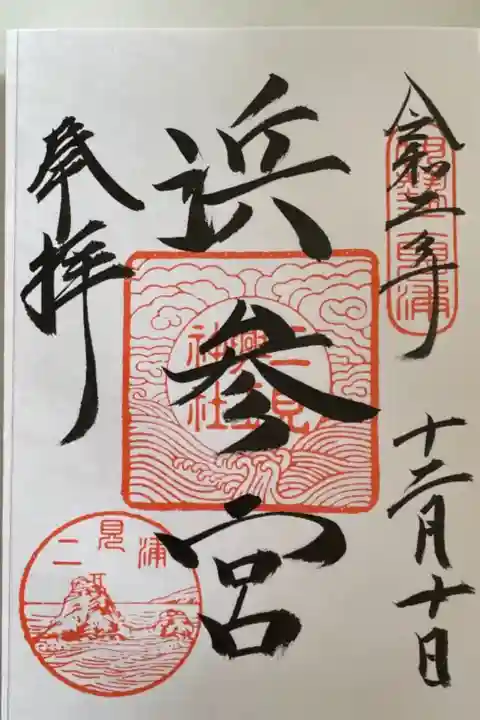 令和二年 十二月十日
浜参宮
二見興玉
神社
奉拝
二見浦